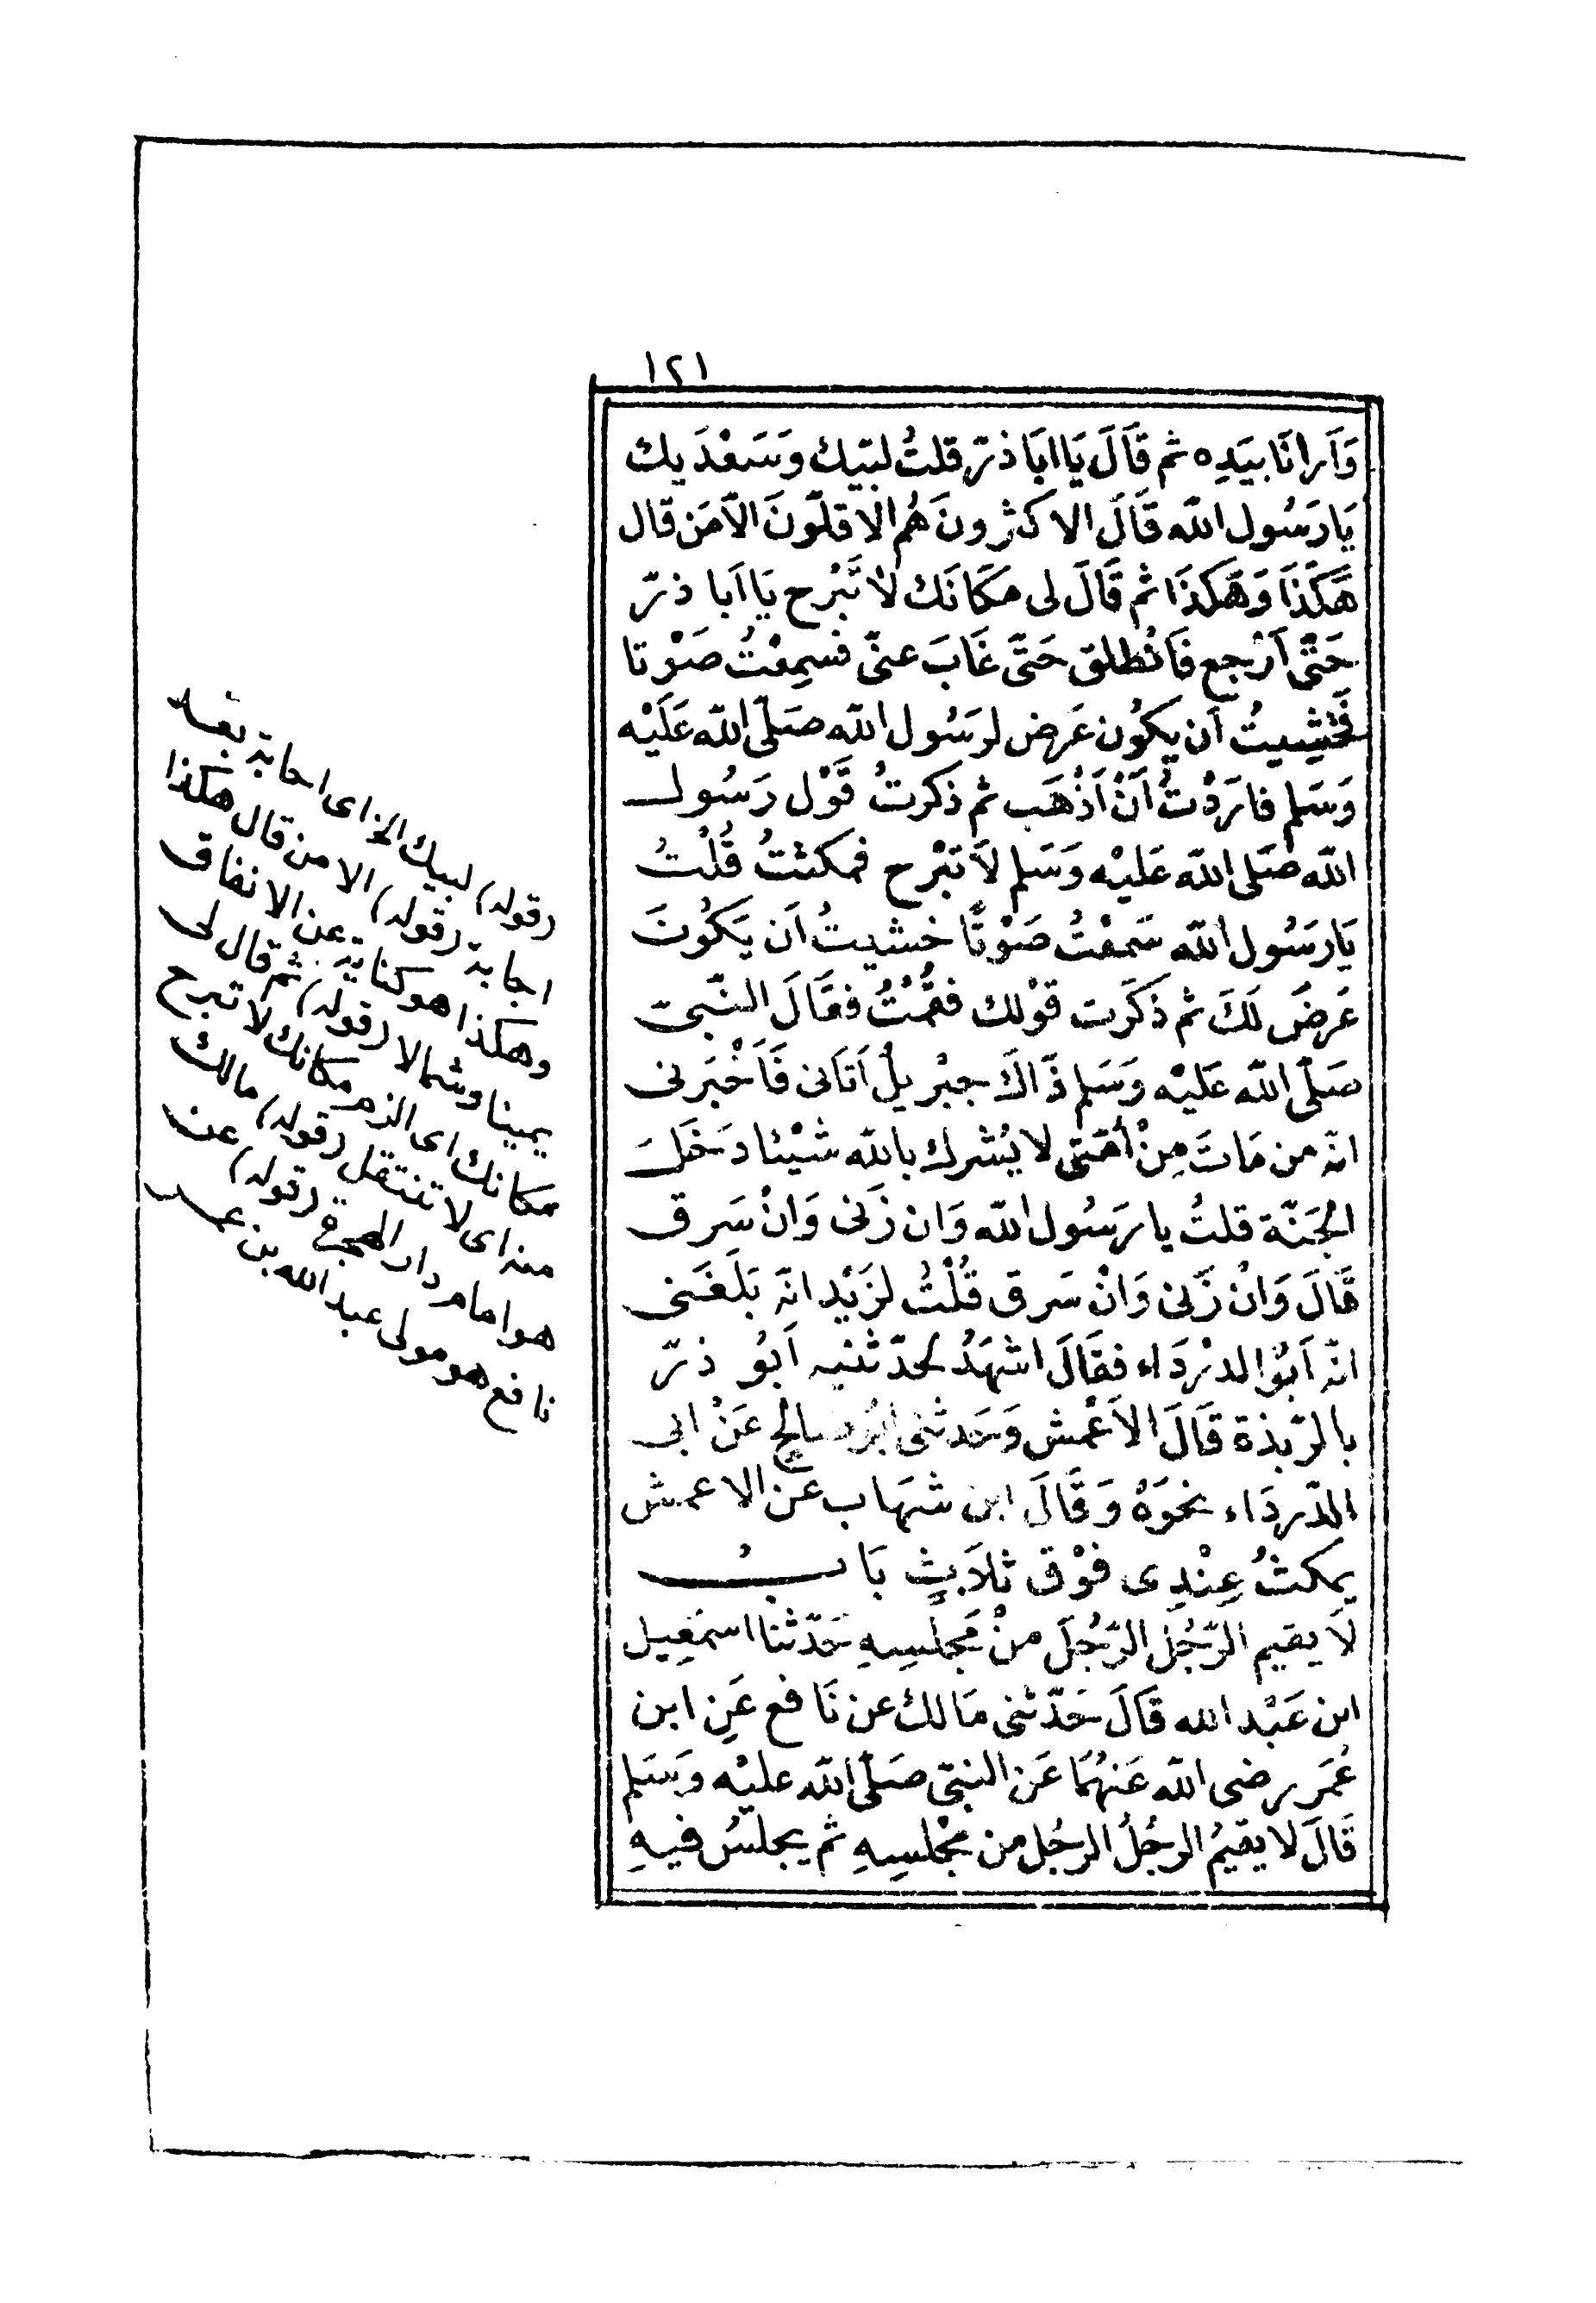 ١٢١
وَاَرانَا بيَدِه ثم قَالَ يَا ابَا ذرّ قلتُ لبّيك وَسَعْدَيك
يَا رَسُول الله قَالَ الاكثرونَ هُم الاقلّونَ الّا مَن قال
هَكَذَا وَهَكَذَا ثم قَالَ لى مَكَانَك لا تَبْرح يَا اَبا ذرّ
حَتّى اَرْجع فَانْطلق حَتّى غَابَ عنّى فسمِعْتُ صَوْتا
فَخشِيتُ اَن يكوُن عُرِض لرسُول الله صَلّى الله عَلَيْه
وَسَلم فارَدْتُ اَنْ اَذْهَب ثم ذكرتُ قَوْل رَسُول
الله صَلى الله عَليْه وَسَلم لاَ تبْرح فمكثتُ قُلْتُ
يَا رَسُول الله سَمعْتُ صَوْتًا خشيتُ اَن يَكوُنَ
عُرِضَ لَكَ ثم ذكَرت قوْلك فقمْتُ فقَالَ النّبىّ
صَلّى الله عَليْه وَسَلم ذَاكَ جبْريلُ اَتَانى فَاَخْبَرنى
انّه من مَاتَ مِنْ اُمّتى لا يُشرك بالله شيْئا دَخَلَ
الجَنّة قلتُ يا رَسُول الله وَان زَنى وَانْ سَرق
قَالَ وَانْ زَنى وَانْ سَرق قُلْتُ لزَيْد انّه بَلَغَنى
انّه اَبوُ الدرْدَاء فقَالَ اشهَدُ لحَدّثنيه اَبوُ ذرّ
بالرّبَذة قَالَ الاَعْمش وَحَدثنى ابوُ صَالح عَنْ ابى
الدّردَاء نخوَهُ وَقَالَ ابن شهَاب عَن الاعمش
يمكثُ عِنْدِى فوْق ثلاَثٍ بَابُ
لاَ يقيم الرّجُل الرّجُلَ منْ مَجلسِهِ حَدّثنا اسمَعِيل
ابن عَبْد الله قَالَ حَدّثنى مَالك عن نَافع عَنِ ابن
عُمَر رضى الله عَنهُمَا عَن النبىّ صَلّى الله عليْه وَسَلم
قَالَ لا يقيمُ الرجُلُ الرجُل من مجْلسِهِ ثم يجلسُ فيهِ
(قوله) لبيك الخ اى اجابة بعد
اجابة (قوله) الا من قال هكذا
وهكذا هو كناية عن الانفاق
يمينا وشمالا (قوله) ثم قال لى
مكانك اى الزم مكانك لا تبرح
منه اى لا تنتقل (قوله) مالك
هو امام دار الهجرة (قوله) عن
نافع هو مولى عبد الله بن عمر